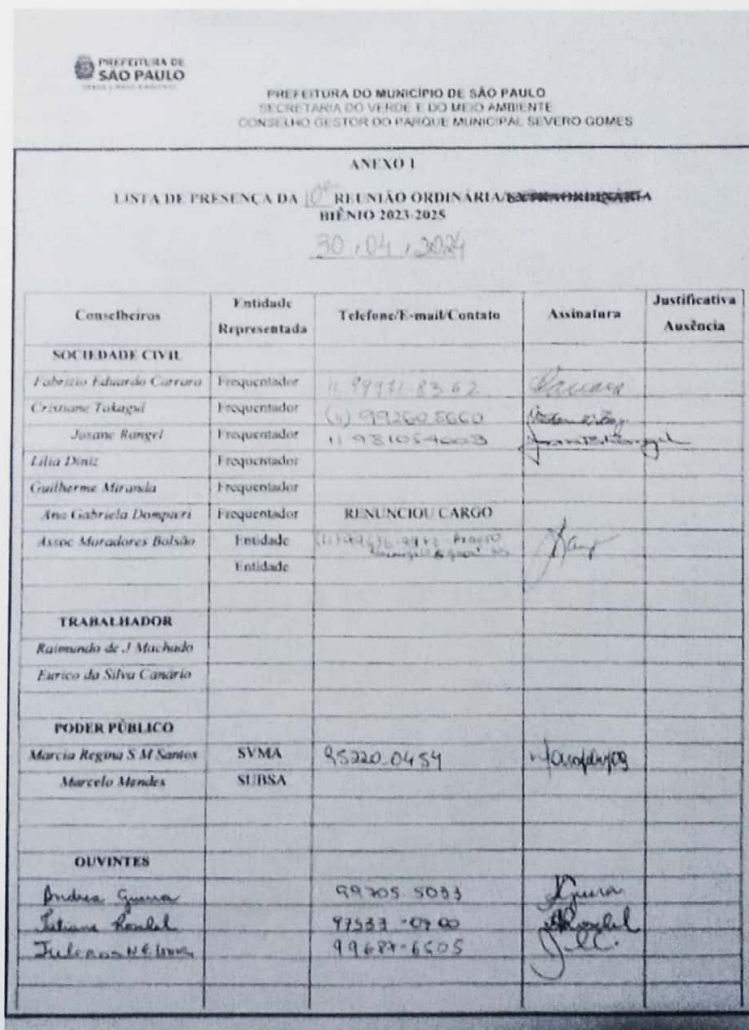 PREFEITURA DE
SÃO PAULO
PREFEITURA DO MUNICÍPIO DE SÃO PAULO
SECRETARIA DO VERDE E DO MEIO AMBIENTE
CONSELHO GESTOR DO PARQUE MUNICIPAL SEVERO GOMES
ANEXO I
LISTA DE PRESENÇA DA 10ª REUNIÃO ORDINÁRIA/EXTRAORDINÁRIA
BIÊNIO 2023-2025
30/04/2024
Conselheiros Entidade Representada Telefone/E-mail/Contato Assinatura Justificativa Ausência
SOCIEDADE CIVIL
Fabrizio Eduardo Carrara Frequentador 11 99971-8362
Cristiane Takagui Frequentador (11) 992605660
Josane Rangel Frequentador 11 981054603
Lilia Diniz Frequentador
Guilherme Miranda Frequentador
Ana Gabriela Dompieri Frequentador RENUNCIOU CARGO
Assoc Moradores Bolsão Entidade
Entidade
TRABALHADOR
Raimundo de J Machado
Eurico da Silva Canário
PODER PÚBLICO
Marcia Regina S M Santos SVMA 95220-0454
Marcelo Mendes SUBSA
OUVINTES
Andrea Guerra 99705.5033 Guerra
Tatiane 97533-0700
99687-6505